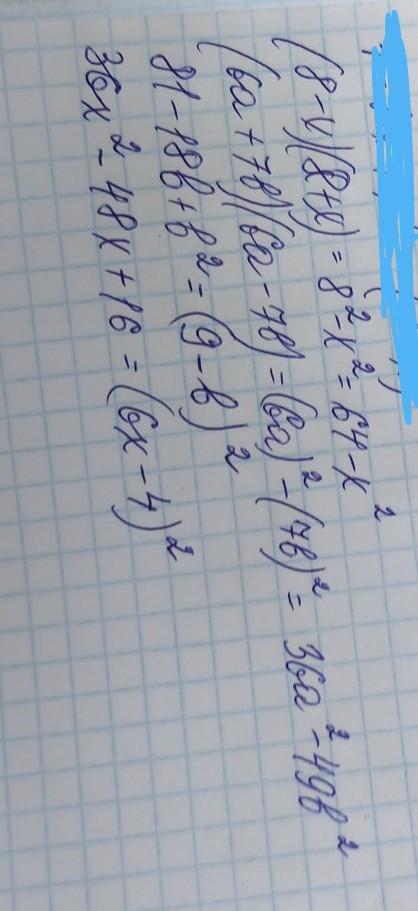 (8-x)(8+x) = 8² - x² = 64 - x²
(6a + 7b)(6a - 7b) = (6a)² - (7b)² = 36a² - 49b²
81 - 18b + b² = (9 - b)²
36x² - 48x + 16 = (6x - 4)²